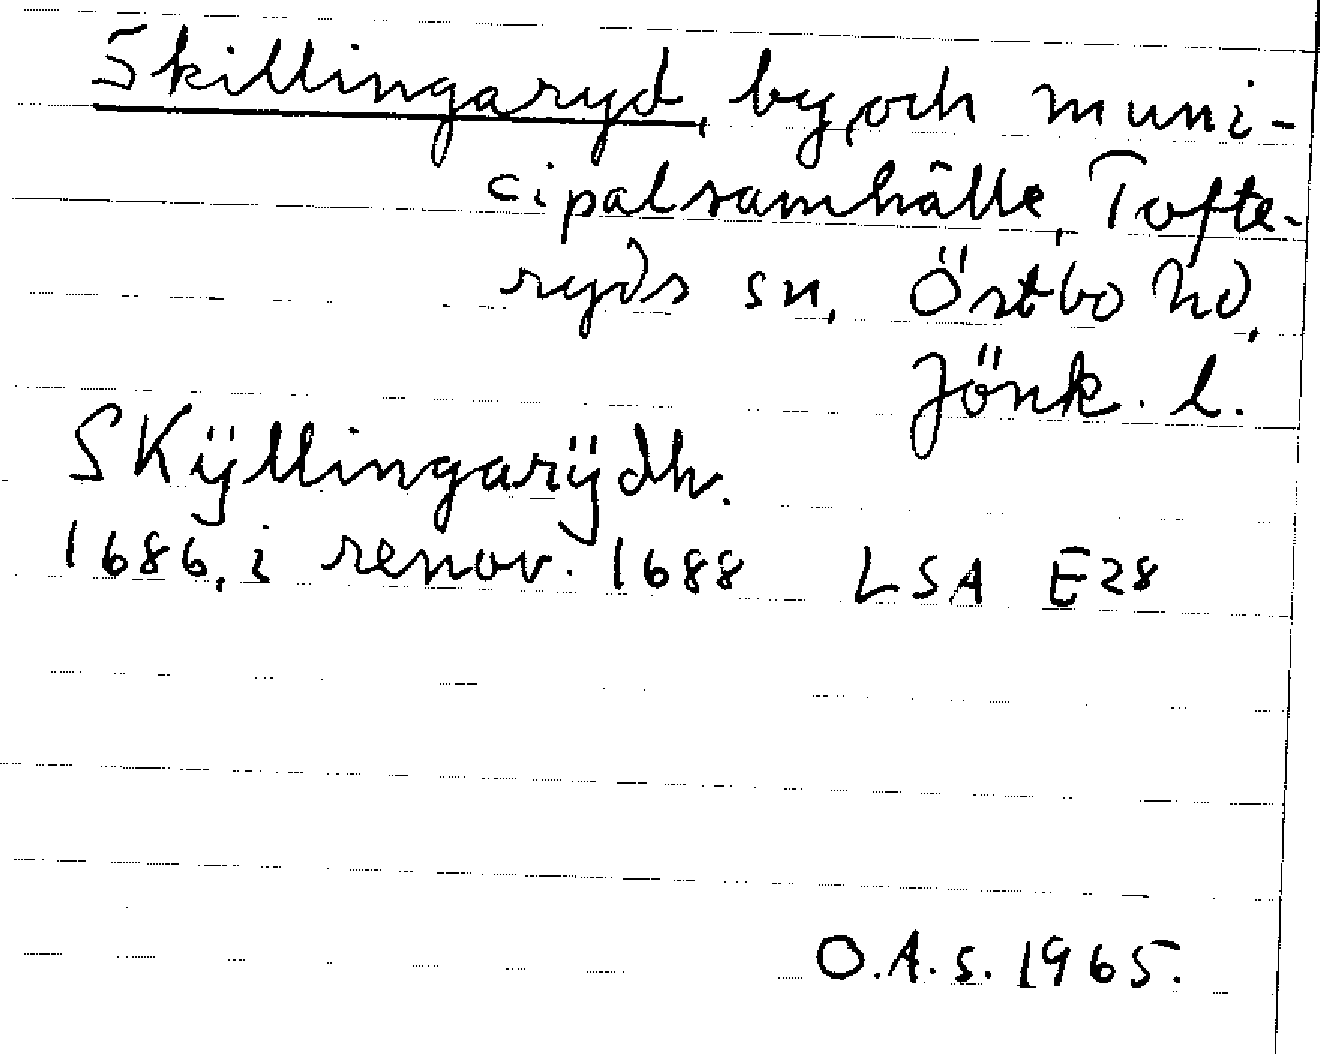 Skillingaryd, by, och muni-
cipalsamhälle, Tofte-
ryds sn, Östbo hd,
Jönk. l.
SKÿllingarÿdh.
1686, i renov. 1688 LSA E28
O.A.S. 1965.